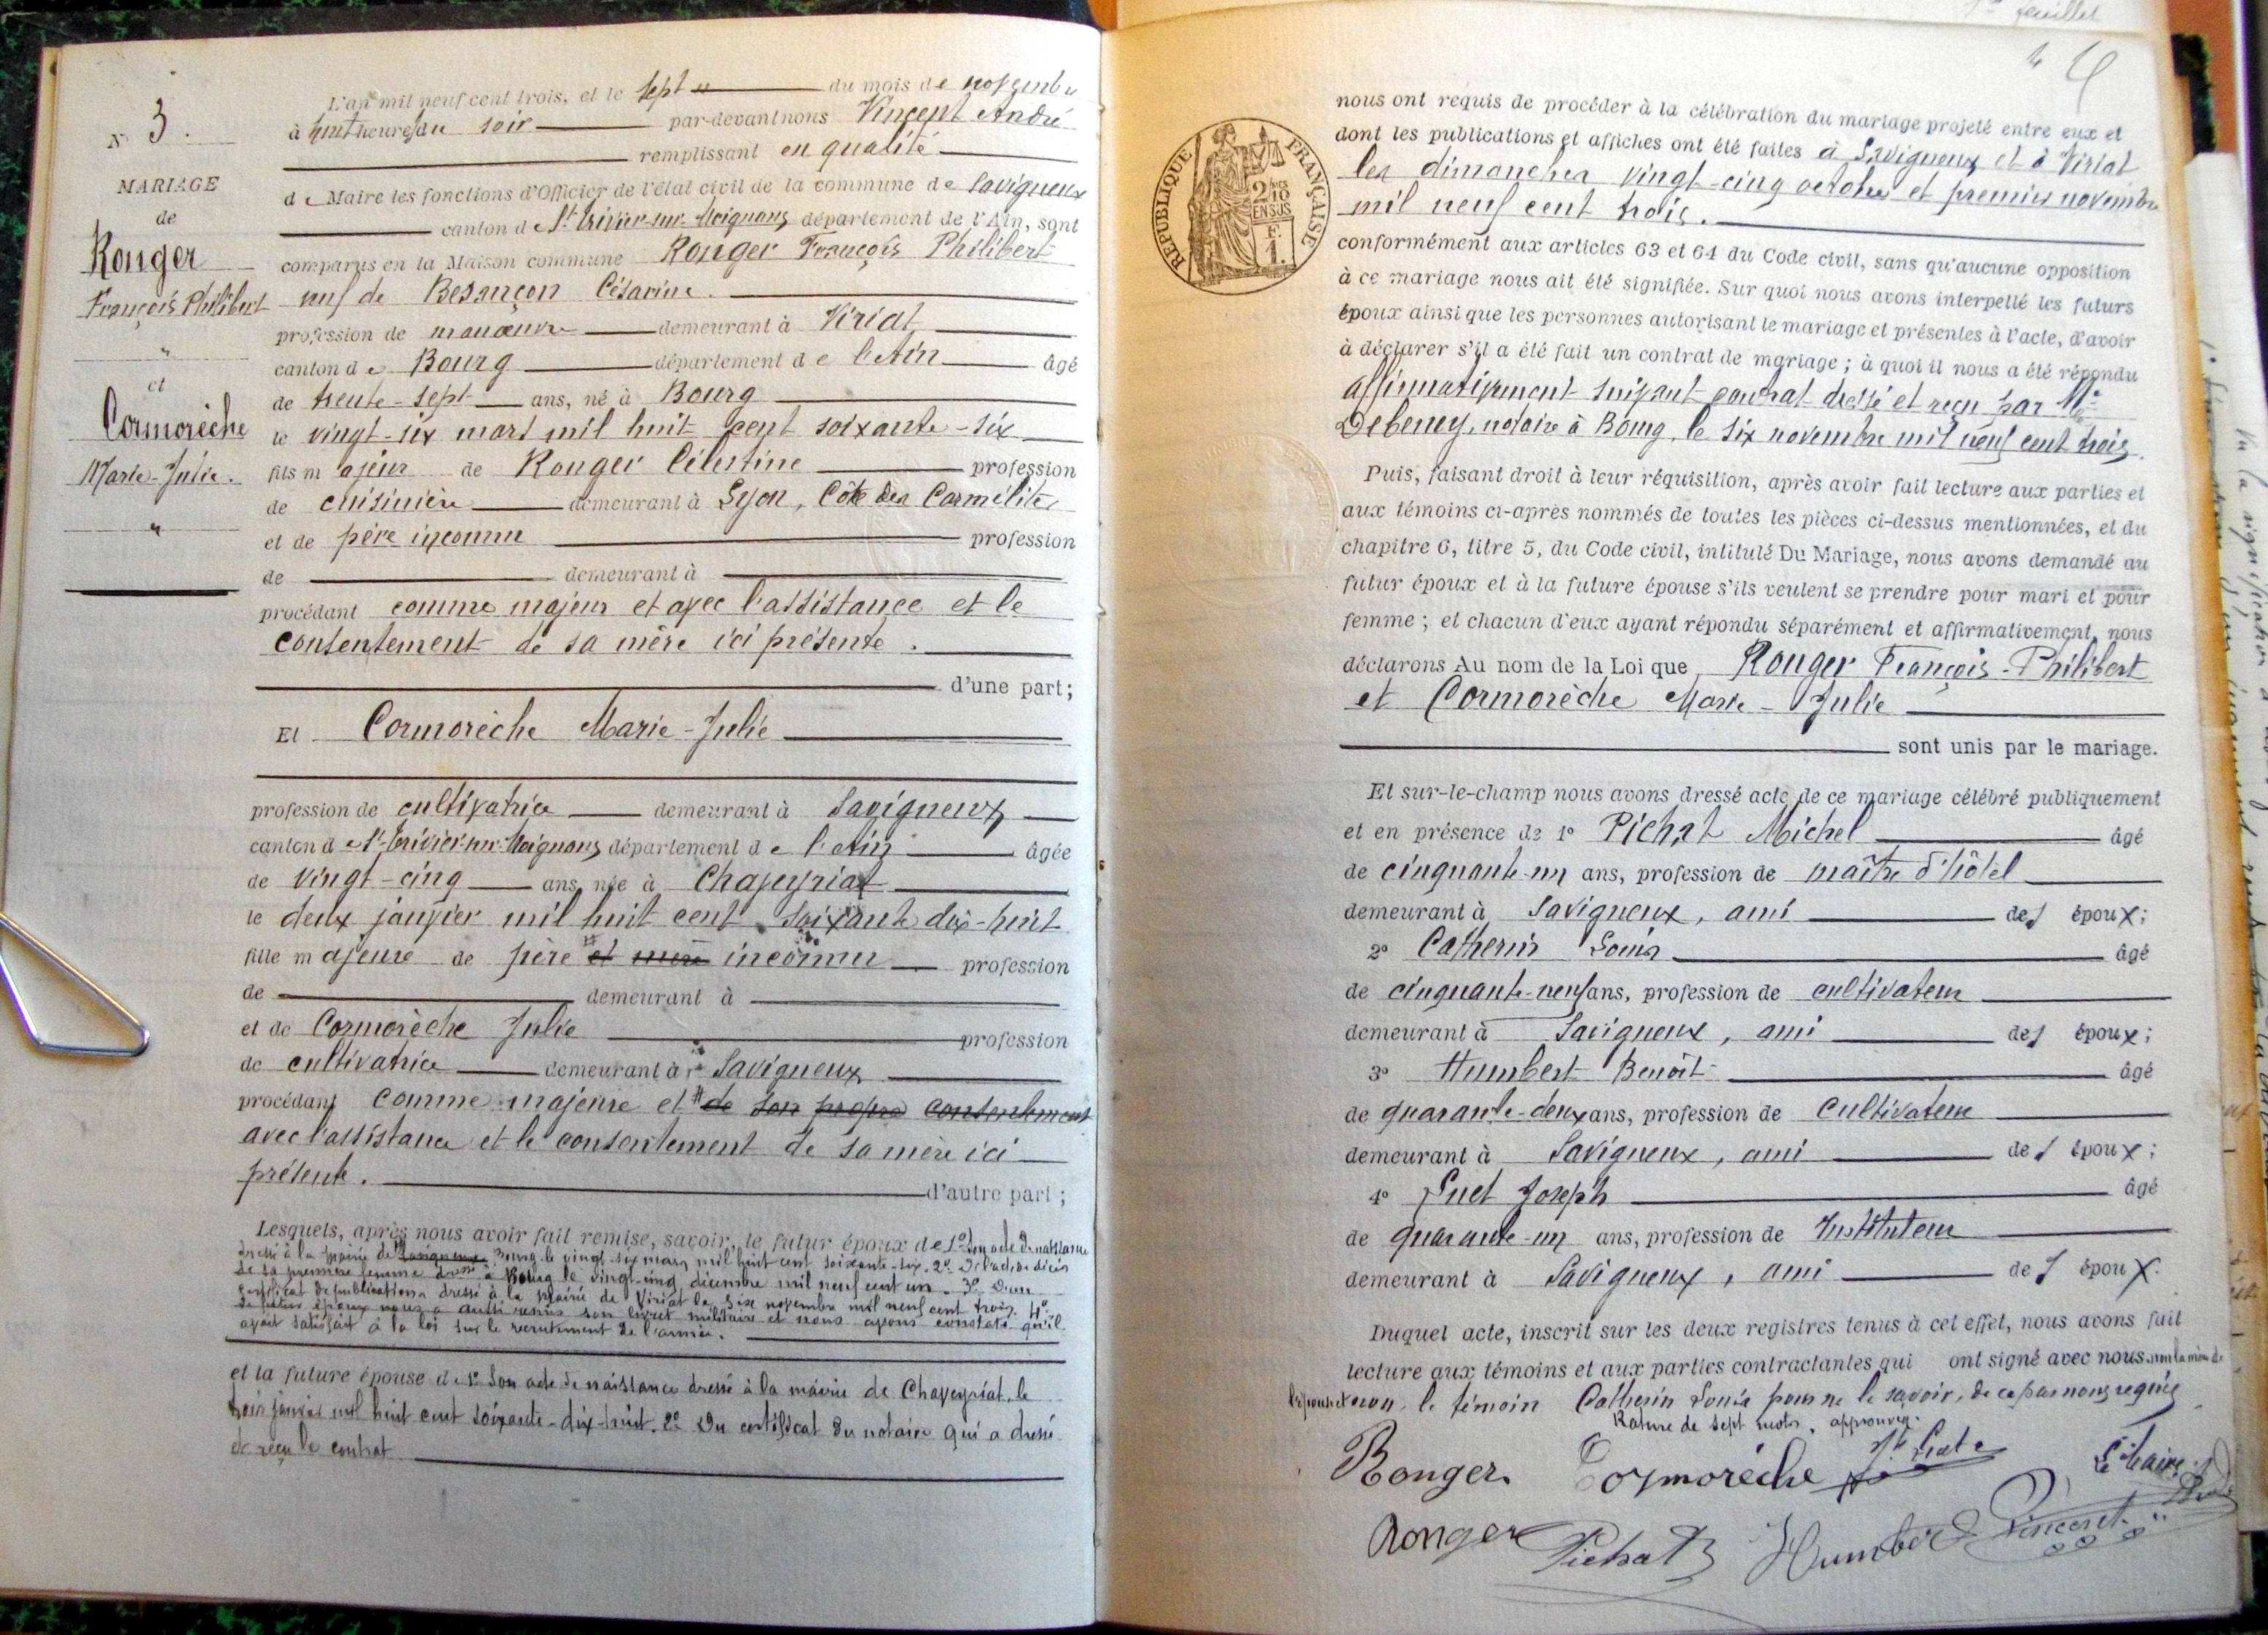 N° 3.
MARIAGE
de
Ronger
François Philibert
"
et
Cormorèche
Marie-Julie.
"
L'an mil neuf cent trois, et le sept du mois de novembre
à huit heures du soir par-devant nous Vincent André
remplissant en qualité
de Maire les fonctions d'Officier de l'état civil de la commune de Savigneux
canton de St Trivier-sur-Moignans, département de l'Ain, sont
comparus en la Maison commune Ronger François Philibert
veuf de Besançon Césarine.
profession de manœuvre demeurant à Viriat
canton de Bourg département de l'Ain âgé
de trente-sept ans, né à Bourg
le vingt-six mars mil huit cent soixante-six
fils majeur de Ronger Célestine profession
de cuisinière demeurant à Lyon, Côte des Carmélites
et de père inconnu profession
de demeurant à
procédant comme majeur et avec l'assistance et le
consentement de sa mère ici présente.
d'une part;
Et Cormorèche Marie-Julie
profession de cultivatrice demeurant à Savigneux
canton de St-Trivier-sur-Moignans département de l'Ain âgée
de vingt-cinq ans, née à Chaveyriat
le deux janvier mil huit cent soixante dix-huit
fille majeure de père et mère inconnu profession
de demeurant à
et de Cormorèche Julie profession
de cultivatrice demeurant à Savigneux
procédant comme majeure et de son propre consentement
avec l'assistance et le consentement de sa mère ici
présente. d'autre part;
Lesquels, après nous avoir fait remise, savoir, le futur époux de 1° Son acte de naissance
dressé à la mairie de Savigneux Bourg le vingt-six mars mil huit cent soixante-six. 2° De l'acte de décès
de sa première femme dressé à Bourg le vingt-cinq décembre mil neuf cent un. 3° D'un
certificat de publications dressé à la mairie de Viriat le six novembre mil neuf cent trois. 4°
Le futur époux nous a aussi remis son livret militaire et nous avons constaté qu'il
avait satisfait à la loi sur le recrutement de l'armée.
et la future épouse de 1° Son acte de naissance dressé à la mairie de Chaveyriat, le
trois janvier mil huit cent soixante-dix-huit. 2° Du certificat du notaire qui a dressé
et reçu le contrat
1er feuillet
4
RÉPUBLIQUE FRANÇAISE
2/10 EN SUS
F. 1.
nous ont requis de procéder à la célébration du mariage projeté entre eux et
dont les publications et affiches ont été faites à Savigneux et à Viriat
les dimanches vingt-cinq octobre et premier novembre
mil neuf cent trois.
conformément aux articles 63 et 64 du Code civil, sans qu'aucune opposition
à ce mariage nous ait été signifiée. Sur quoi nous avons interpellé les futurs
époux ainsi que les personnes autorisant le mariage et présentes à l'acte, d'avoir
à déclarer s'il a été fait un contrat de mariage; à quoi il nous a été répondu
affirmativement suivant contrat dressé et reçu par Me
Debeney, notaire à Bourg, le six novembre mil neuf cent trois.
Puis, faisant droit à leur réquisition, après avoir fait lecture aux parties et
aux témoins ci-après nommés de toutes les pièces ci-dessus mentionnées, et du
chapitre 6, titre 5, du Code civil, intitulé Du Mariage, nous avons demandé au
futur époux et à la future épouse s'ils veulent se prendre pour mari et pour
femme; et chacun d'eux ayant répondu séparément et affirmativement, nous
déclarons Au nom de la Loi que Ronger François-Philibert
et Cormorèche Marie-Julie
sont unis par le mariage.
Et sur-le-champ nous avons dressé acte de ce mariage célébré publiquement
et en présence de 1° Pichat Michel âgé
de cinquante-un ans, profession de maître d'hôtel
demeurant à Savigneux, ami des époux;
2° Catherin Louis âgé
de cinquante-neuf ans, profession de cultivateur
demeurant à Savigneux, ami des époux;
3° Humbert Benoit âgé
de quarante-deux ans, profession de cultivateur
demeurant à Savigneux, ami des époux;
4° Guet Joseph âgé
de quarante-un ans, profession de Instituteur
demeurant à Savigneux, ami des époux.
Duquel acte, inscrit sur les deux registres tenus à cet effet, nous avons fait
lecture aux témoins et aux parties contractantes qui ont signé avec nous. non la mère de
l'épouse et non le témoin Catherin Louis pour ne le savoir, de ce par nous requis
Rature de sept mots, approuvée.
Ronger Cormorèche Le Maire
Ronger Pichat Humbert Vincent